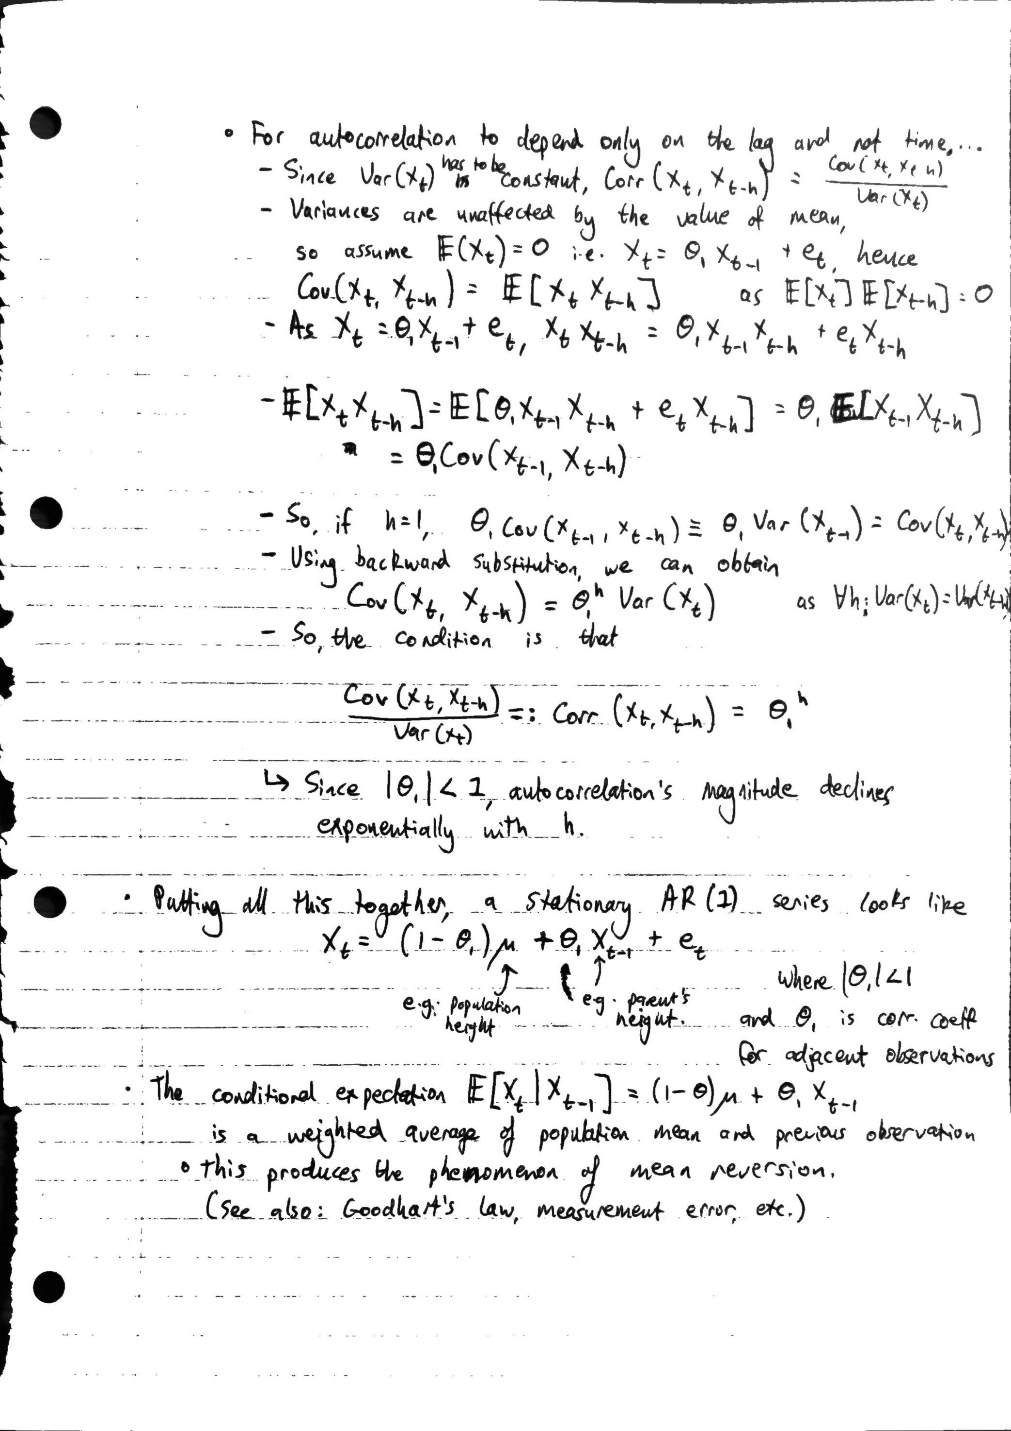 ∘ For autocorrelation to depend only on the lag and not time,...
- Since Var(Xₜ) has to be constant, Corr(Xₜ, Xₜ₋ₕ) = Cov(Xₜ, Xₜ₋ₕ) / Var(Xₜ)
- Variances are unaffected by the value of mean,
so assume 𝔼(Xₜ) = 0 i.e. Xₜ = θ₁Xₜ₋₁ + eₜ, hence
Cov(Xₜ, Xₜ₋ₕ) = 𝔼[Xₜ Xₜ₋ₕ] as 𝔼[Xₜ]𝔼[Xₜ₋ₕ] = 0
- As Xₜ = θ₁Xₜ₋₁ + eₜ, XₜXₜ₋ₕ = θ₁Xₜ₋₁Xₜ₋ₕ + eₜXₜ₋ₕ
- 𝔼[XₜXₜ₋ₕ] = 𝔼[θ₁Xₜ₋₁Xₜ₋ₕ + eₜXₜ₋ₕ] = θ₁𝔼[Xₜ₋₁Xₜ₋ₕ]
= θ₁Cov(Xₜ₋₁, Xₜ₋ₕ)
- So, if h=1, θ₁Cov(Xₜ₋₁, Xₜ₋ₕ) ≡ θ₁Var(Xₜ₋₁) = Cov(Xₜ, Xₜ₋ₕ)
- Using backward substitution, we can obtain
Cov(Xₜ, Xₜ₋ₕ) = θ₁ʰ Var(Xₜ) as ∀h: Var(Xₜ) = Var(Xₜ₋ₕ)
- So, the condition is that
Cov(Xₜ, Xₜ₋ₕ) / Var(Xₜ) =: Corr(Xₜ, Xₜ₋ₕ) = θ₁ʰ
↳ Since |θ₁| < 1, autocorrelation's magnitude declines
exponentially with h.
· Putting all this together, a stationary AR(1) series looks like
Xₜ = (1 - θ₁)μ + θ₁Xₜ₋₁ + eₜ
where |θ₁| < 1
e.g. population height
e.g. parent's height.
and θ₁ is corr. coeff
for adjacent observations
· The conditional expectation 𝔼[Xₜ|Xₜ₋₁] = (1-θ)μ + θ₁Xₜ₋₁
is a weighted average of population mean and previous observation
∘ this produces the phenomenon of mean reversion.
(See also: Goodhart's law, measurement error, etc.)